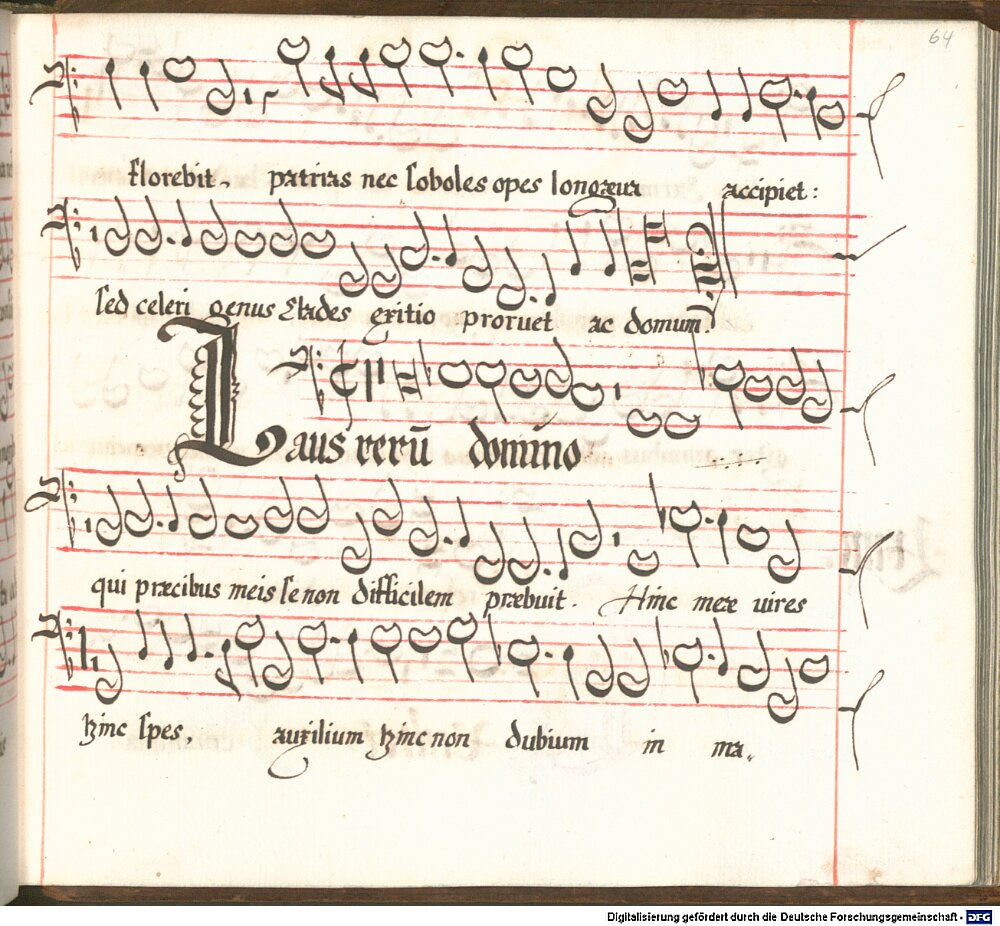 64
florebit. patrias nec soboles opes longæua accipiet:
sed celeri genus Etades exitio proruet ac domum̄.
Laus rerū domino
qui præcibus meis se non difficilem præbuit. Hinc meæ uires
hinc spes, auxilium hinc non dubium in ma.
Digitalisierung gefördert durch die Deutsche Forschungsgemeinschaft - DFG